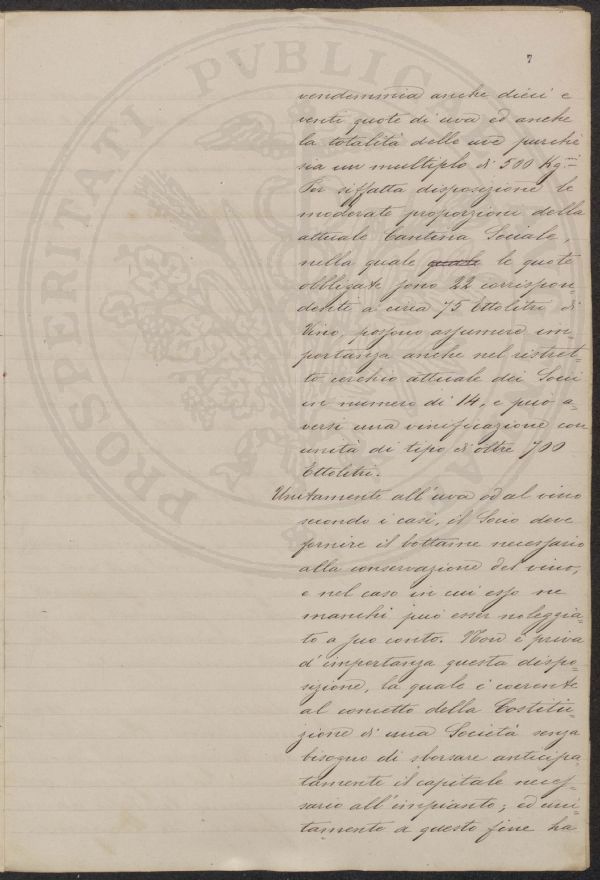 7
PROSPERITATI PVBLICAE
vendemmia anche dieci e
venti quote di uva ed anche
la totalità delle uve purchè
sia un multiplo di 500 Kg.mi
Per siffatta disposizione le
moderate proporzioni della
attuale Cantina Sociale,
nella quale quale le quote
obbligate sono 22 corrispon=
denti a circa 75 Ettolitri di
Vino, possono assumere im=
portanza anche nel ristret=
to cerchio attuale dei Soci
in numero di 14, e può a=
versi una vinificazione con
unità di tipo d'oltre 700
Ettolitri.
Unitamente all'uva od al vino
secondo i casi, il Socio deve
fornire il bottame necessario
alla conservazione del vino,
e nel caso in cui esso ne
manchi può esser noleggia=
to a suo conto. Non è priva
d'importanza questa dispo=
sizione, la quale è coerente
al concetto della Costitu=
zione di una Società senza
bisogno di sborsare anticipa
tamente il capitale neces=
sario all'impianto; ed uni=
tamente a questo fine ha